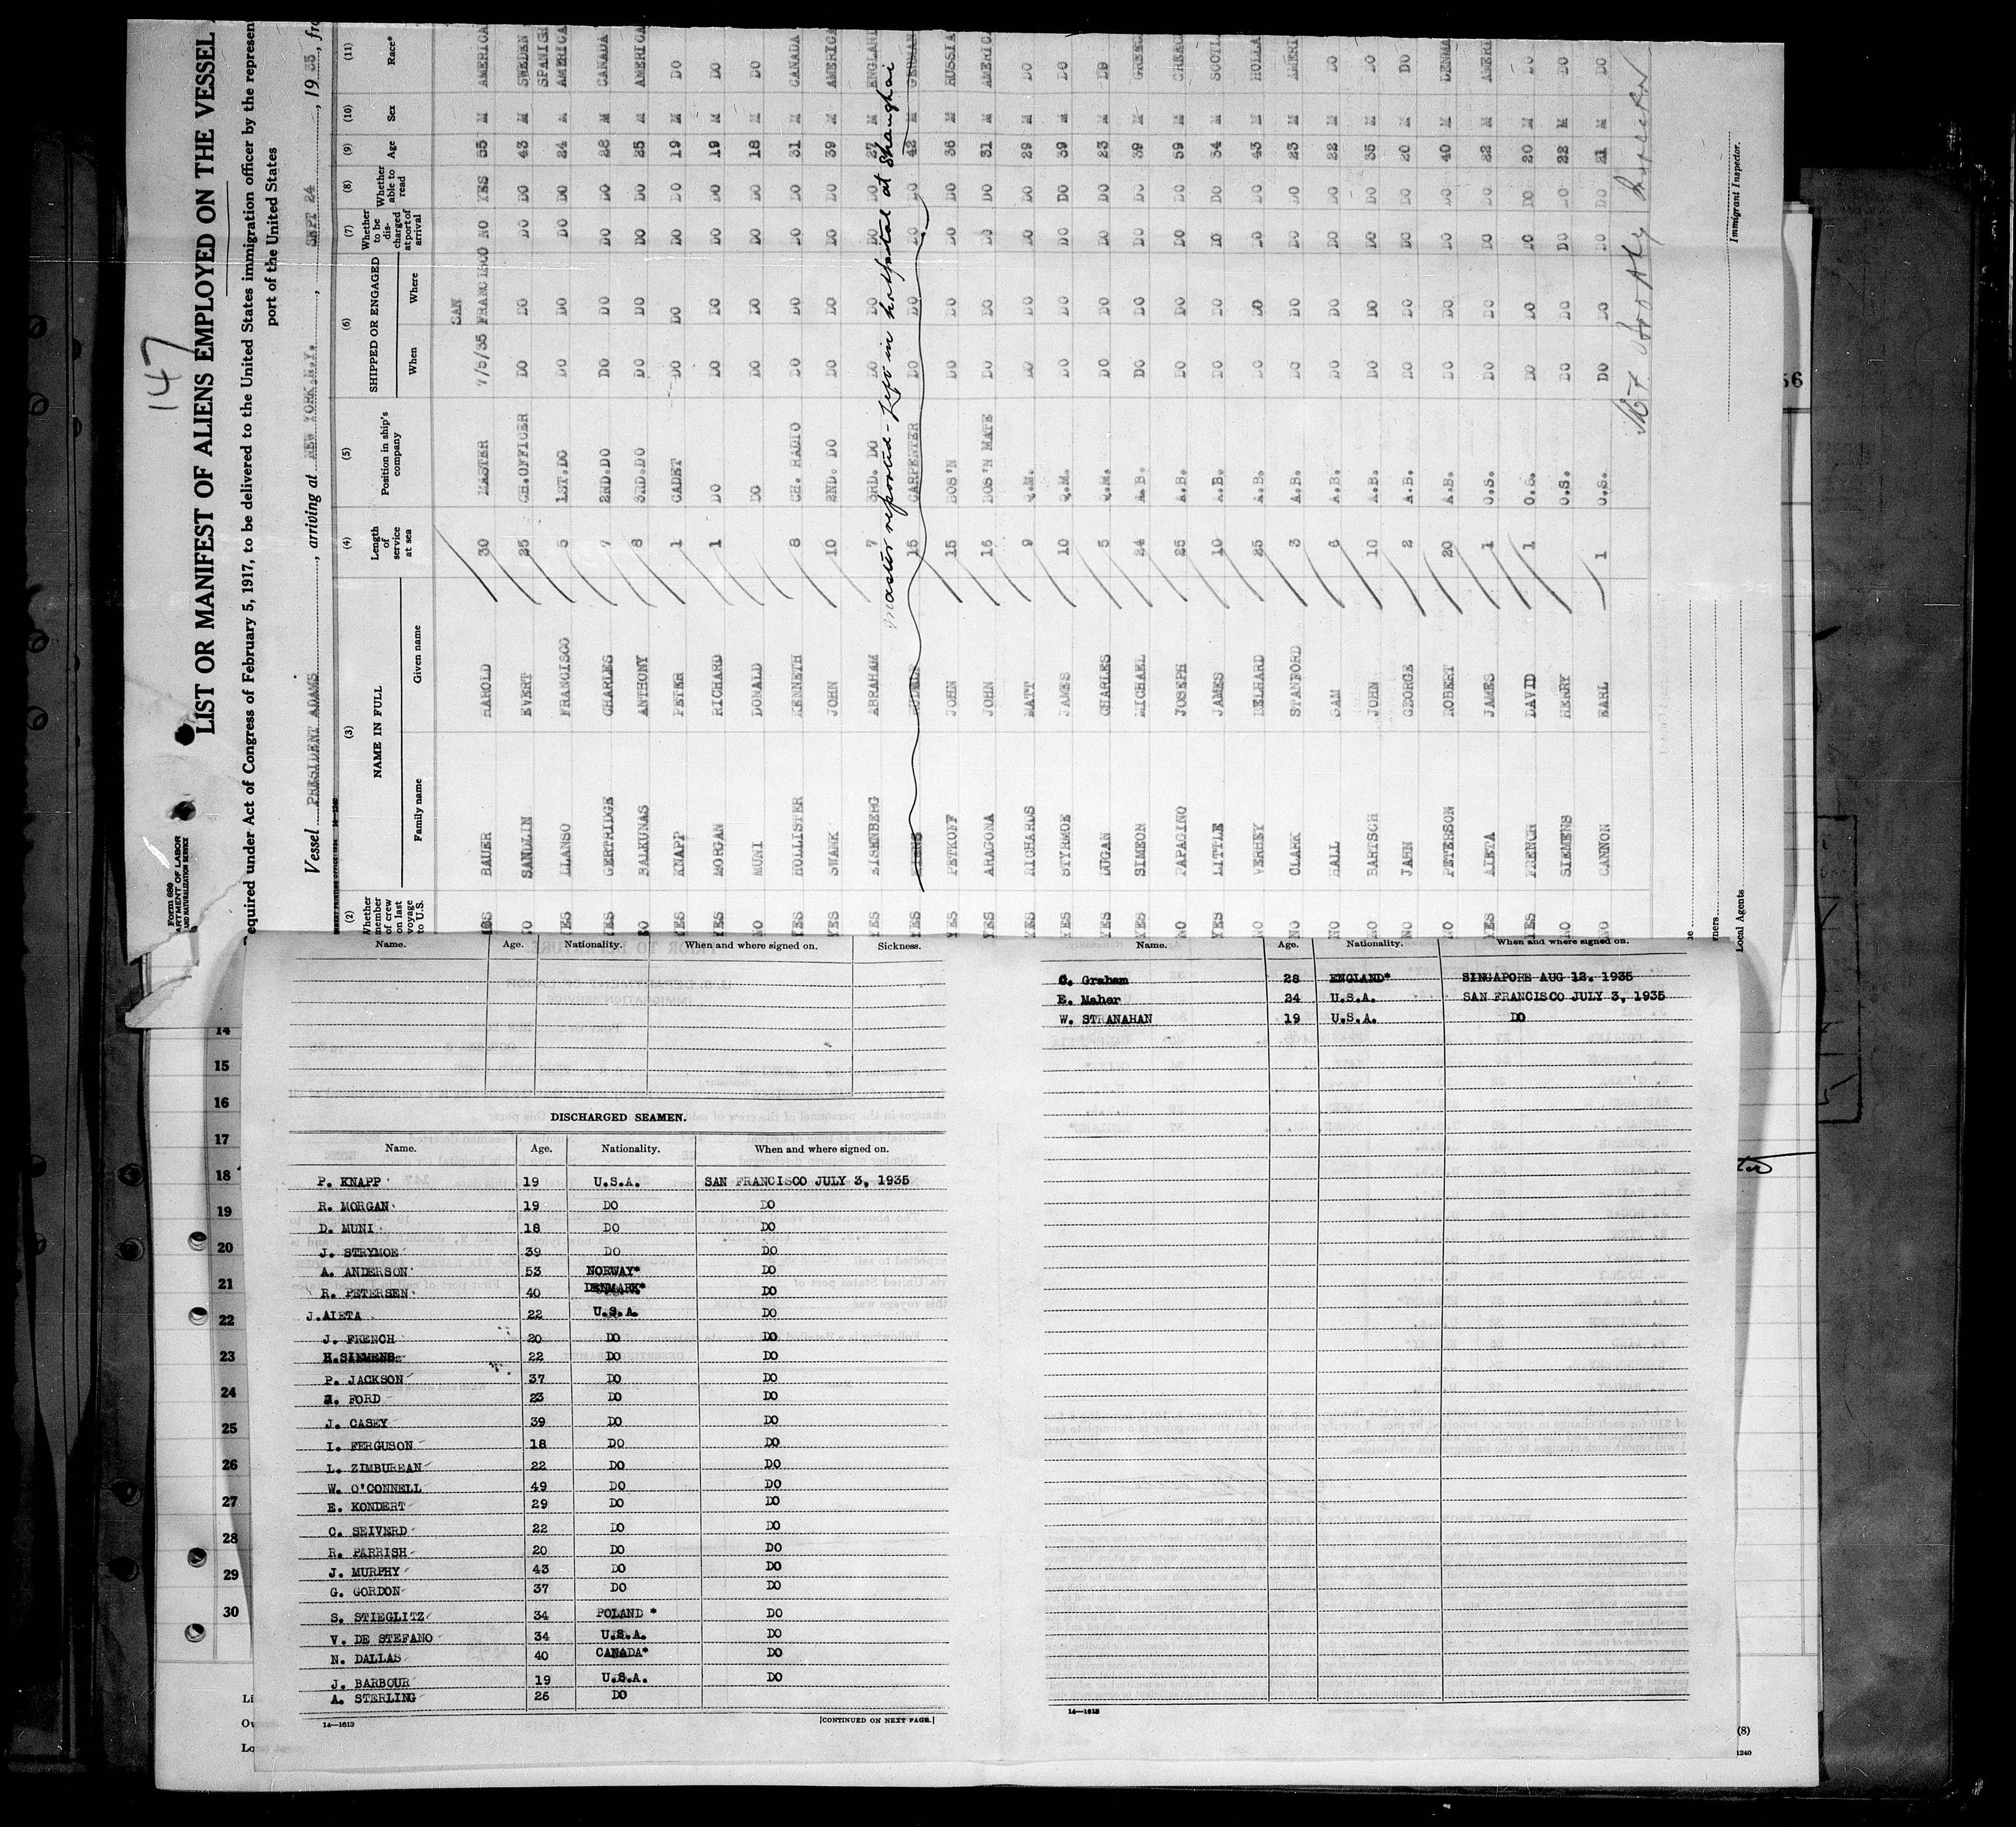 147
Form 680
LIST OR MANIFEST OF ALIENS EMPLOYED ON THE VESSEL
Required under Act of Congress of February 5, 1917, to be delivered to the United States immigration officer by the represen
port of the United States
Vessel PRESIDENT ADAMS, arriving at NEW YORK, N.Y., SEPT 24, 1935, fr
(2) (3) (4) (5) (6) (7) (8) (9) (10) (11)
Whether member of crew on last voyage to U.S. NAME IN FULL Length of service at sea Position in ship's company SHIPPED OR ENGAGED Whether to be discharged at port of arrival Whether able to read Age Sex Race*
Family name Given name When Where
SAN
BAUER HAROLD 30 MASTER 7/5/35 FRANCISCO NO YES 55 M AMERICA
NO SANDLIN EVERT 25 CH.OFFICER DO DO DO DO 43 M SWEDEN
SPANISH
YES LLANSO FRANCISCO 5 1ST.DO DO DO DO DO 24 M AMERICA
YES GERTRIDGE CHARLES 7 2ND.DO DO DO DO DO 28 M CANADA
NO BALKUNAS ANTHONY 8 3RD.DO DO DO DO DO 25 M AMERICA
YES KNAPP PETER 1 CADET DO DO DO DO 19 M DO
YES MORGAN RICHARD 1 DO DO DO DO DO 19 M DO
NO MUNI DONALD DO DO DO DO DO 18 M DO
YES HOLLISTER KENNETH 8 CH. RADIO DO DO DO DO 31 M CANADA
YES SWANK JOHN 10 2ND. DO DO DO DO DO 39 M AMERICA
YES EISENBERG ABRAHAM 7 3RD. DO DO DO DO DO 27 M ENGLAND
master reported - left in hospital at Shanghai
YES 15 CARPENTER DO DO DO DO 42 M GERMAN
YES PETKOFF JOHN 15 BOS'N DO DO DO DO 36 M RUSSIA
YES ARAGONA JOHN 16 BOS'N MATE DO DO DO DO 31 M AMERIC
YES RICHARDS MATT 9 Q.M. DO DO DO DO 29 M DO
YES STYRMOE JAMES 10 Q.M. DO DO DO DO 39 M DO
YES DUGAN CHARLES 5 Q.M. DO DO DO DO 23 M DO
YES SIMEON MICHAEL 24 A.B. DO DO DO DO 39 M GREEC
NO PAPAGINO JOSEPH 25 A.B. DO DO DO DO 59 M GREEC
YES LITTLE JAMES 10 A.B. DO DO DO DO 34 M SCOTL
NO VERHEY BELHARD 25 A.B. DO DO DO DO 43 M HOLLA
NO CLARK STANFORD 3 A.B. DO DO DO DO 23 M AMERI
NO HALL SAM 6 A.B. DO DO DO DO 22 M DO
NO BARTSCH JOHN 10 A.B. DO DO DO DO 35 M DO
NO JAHN GEORGE 2 A.B. DO DO DO DO 20 M DO
NO PETERSON ROBERT 20 A.B. DO DO DO DO 40 M DENMA
YES AIETA JAMES 1 O.S. DO DO DO DO 22 M AMERI
YES FRENCH DAVID 1 O.S. DO DO DO DO 20 M DO
NO SIEMENS HENRY O.S. DO DO DO DO 22 M DO
NO CANNON EARL 1 O.S. DO DO DO DO 21 M DO
Immigrant Inspector.
Local Agents
56
Name. Age. Nationality. When and where signed on. Sickness.
DISCHARGED SEAMEN.
Name. Age. Nationality. When and where signed on.
P. KNAPP 19 U.S.A. SAN FRANCISCO JULY 3, 1935
R. MORGAN 19 DO DO
D. MUNI 18 DO DO
J. STRYMOE 39 DO DO
A. ANDERSON 53 NORWAY* DO
R. PETERSEN 40 DENMARK* DO
J.AIETA 22 U.S.A. DO
J. FRENCH 20 DO DO
H.SIEMENS 22 DO DO
P. JACKSON 37 DO DO
FORD 23 DO DO
J. CASEY 39 DO DO
I. FERGUSON 18 DO DO
L. ZIMBUREAN 22 DO DO
W. O'CONNELL 49 DO DO
E. KONDERT 29 DO DO
C. SEIVERD 22 DO DO
R. PARRISH 20 DO DO
J. MURPHY 43 DO DO
G. GORDON 37 DO DO
S. STIEGLITZ 34 POLAND * DO
V. DE STEFANO 34 U.S.A. DO
N. DALLAS 40 CANADA* DO
J. BARBOUR 19 U.S.A. DO
A. STERLING 26 DO
14—1613
[CONTINUED ON NEXT PAGE.]
Name. Age. Nationality. When and where signed on.
C. Graham 28 ENGLAND* SINGAPORE AUG 12. 1935
E. Maher 24 U.S.A. SAN FRANCISCO JULY 3, 1935
W. STRANAHAN 19 U.S.A. DO
14—1613
14
15
16
17
18
19
20
21
22
23
24
25
26
27
28
29
30
Li
Ow
Lo
(8)
1240